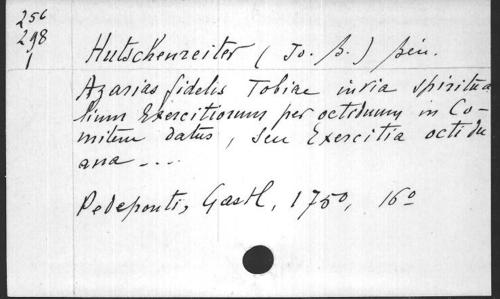 256
298
1
Hutschenreiter (Jo. B.) Bén.
Azarias fidelis Tobiae in via spiritua
lium Exercitiorum per octiduum in Co-
mitem datus, seu Exercitia octidu
ana - ...
Pedeponti, Gastl, 1750, 16º